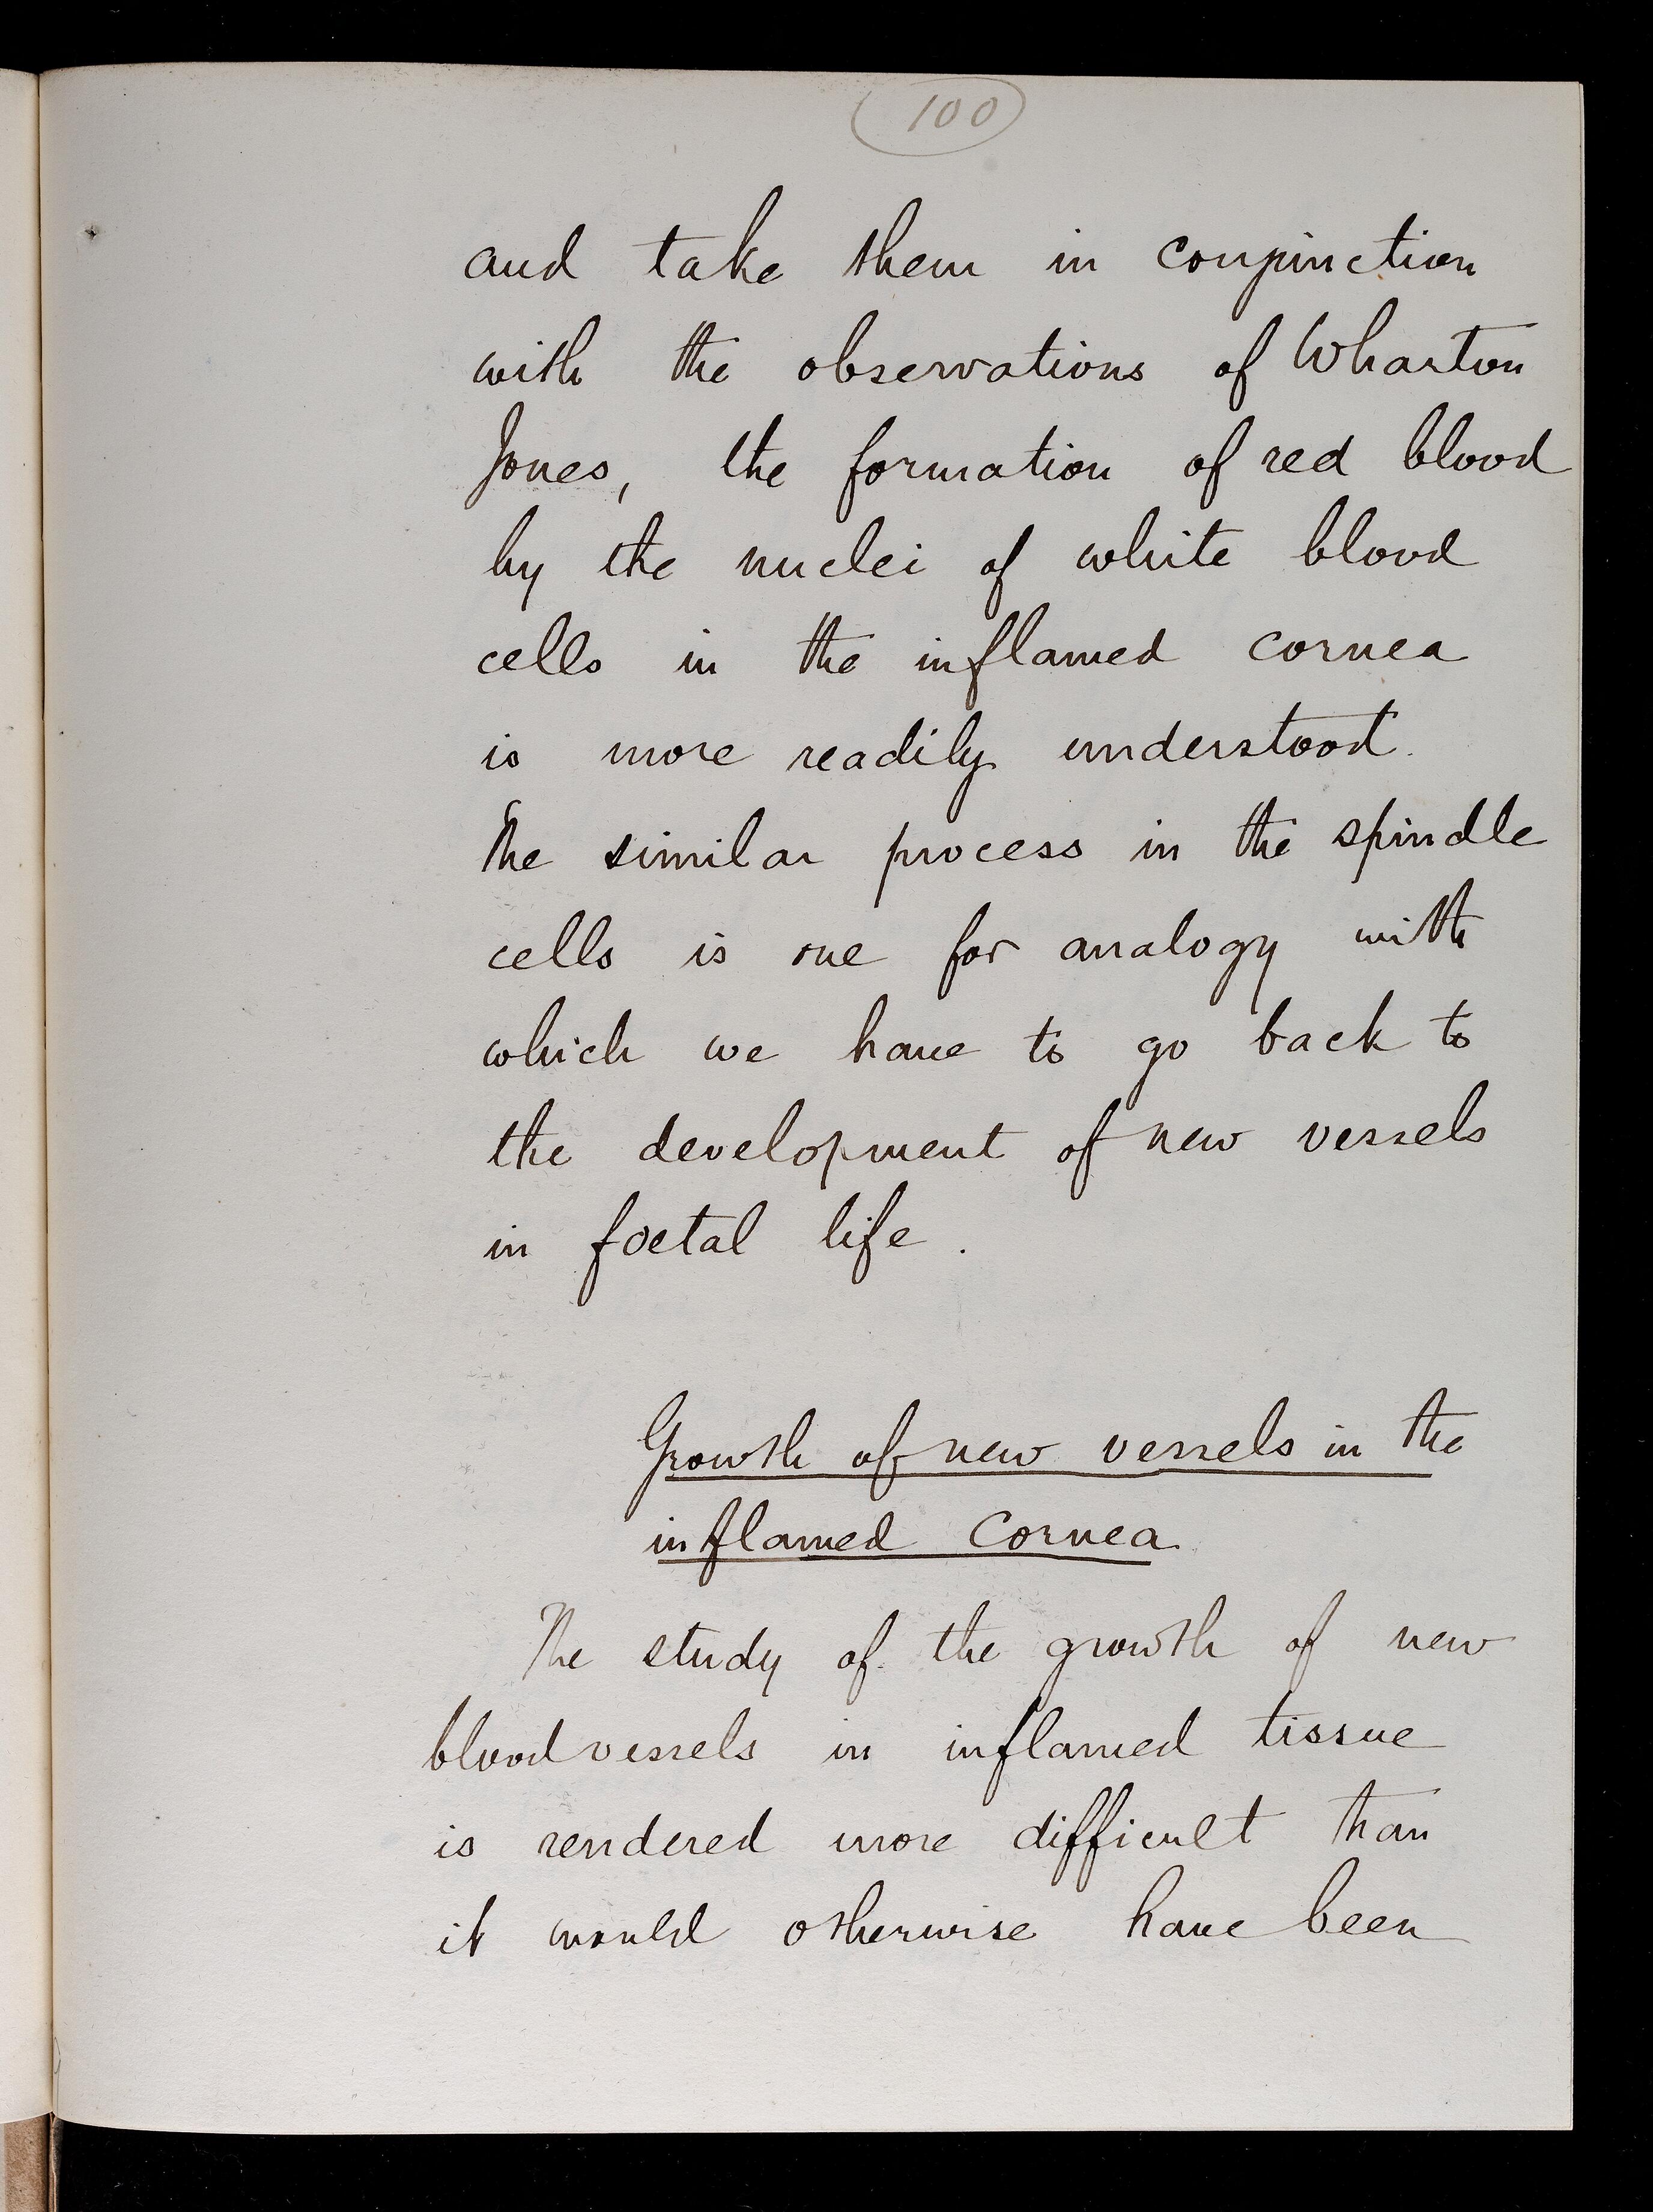 100
and take them in conjunction
with the observations of Wharton
Jones, the formation of red blood
by the nuclei of white blood
cells in the inflamed cornea
is more readily understood.
The similar process in the spindle
cells is one for analogy with
which we have to go back to
the development of new vessels
in foetal life.
Growth of new vessels in the
inflamed Cornea
The study of the growth of new
bloodvessels in inflamed tissue
is rendered more difficult than
it would otherwise have been